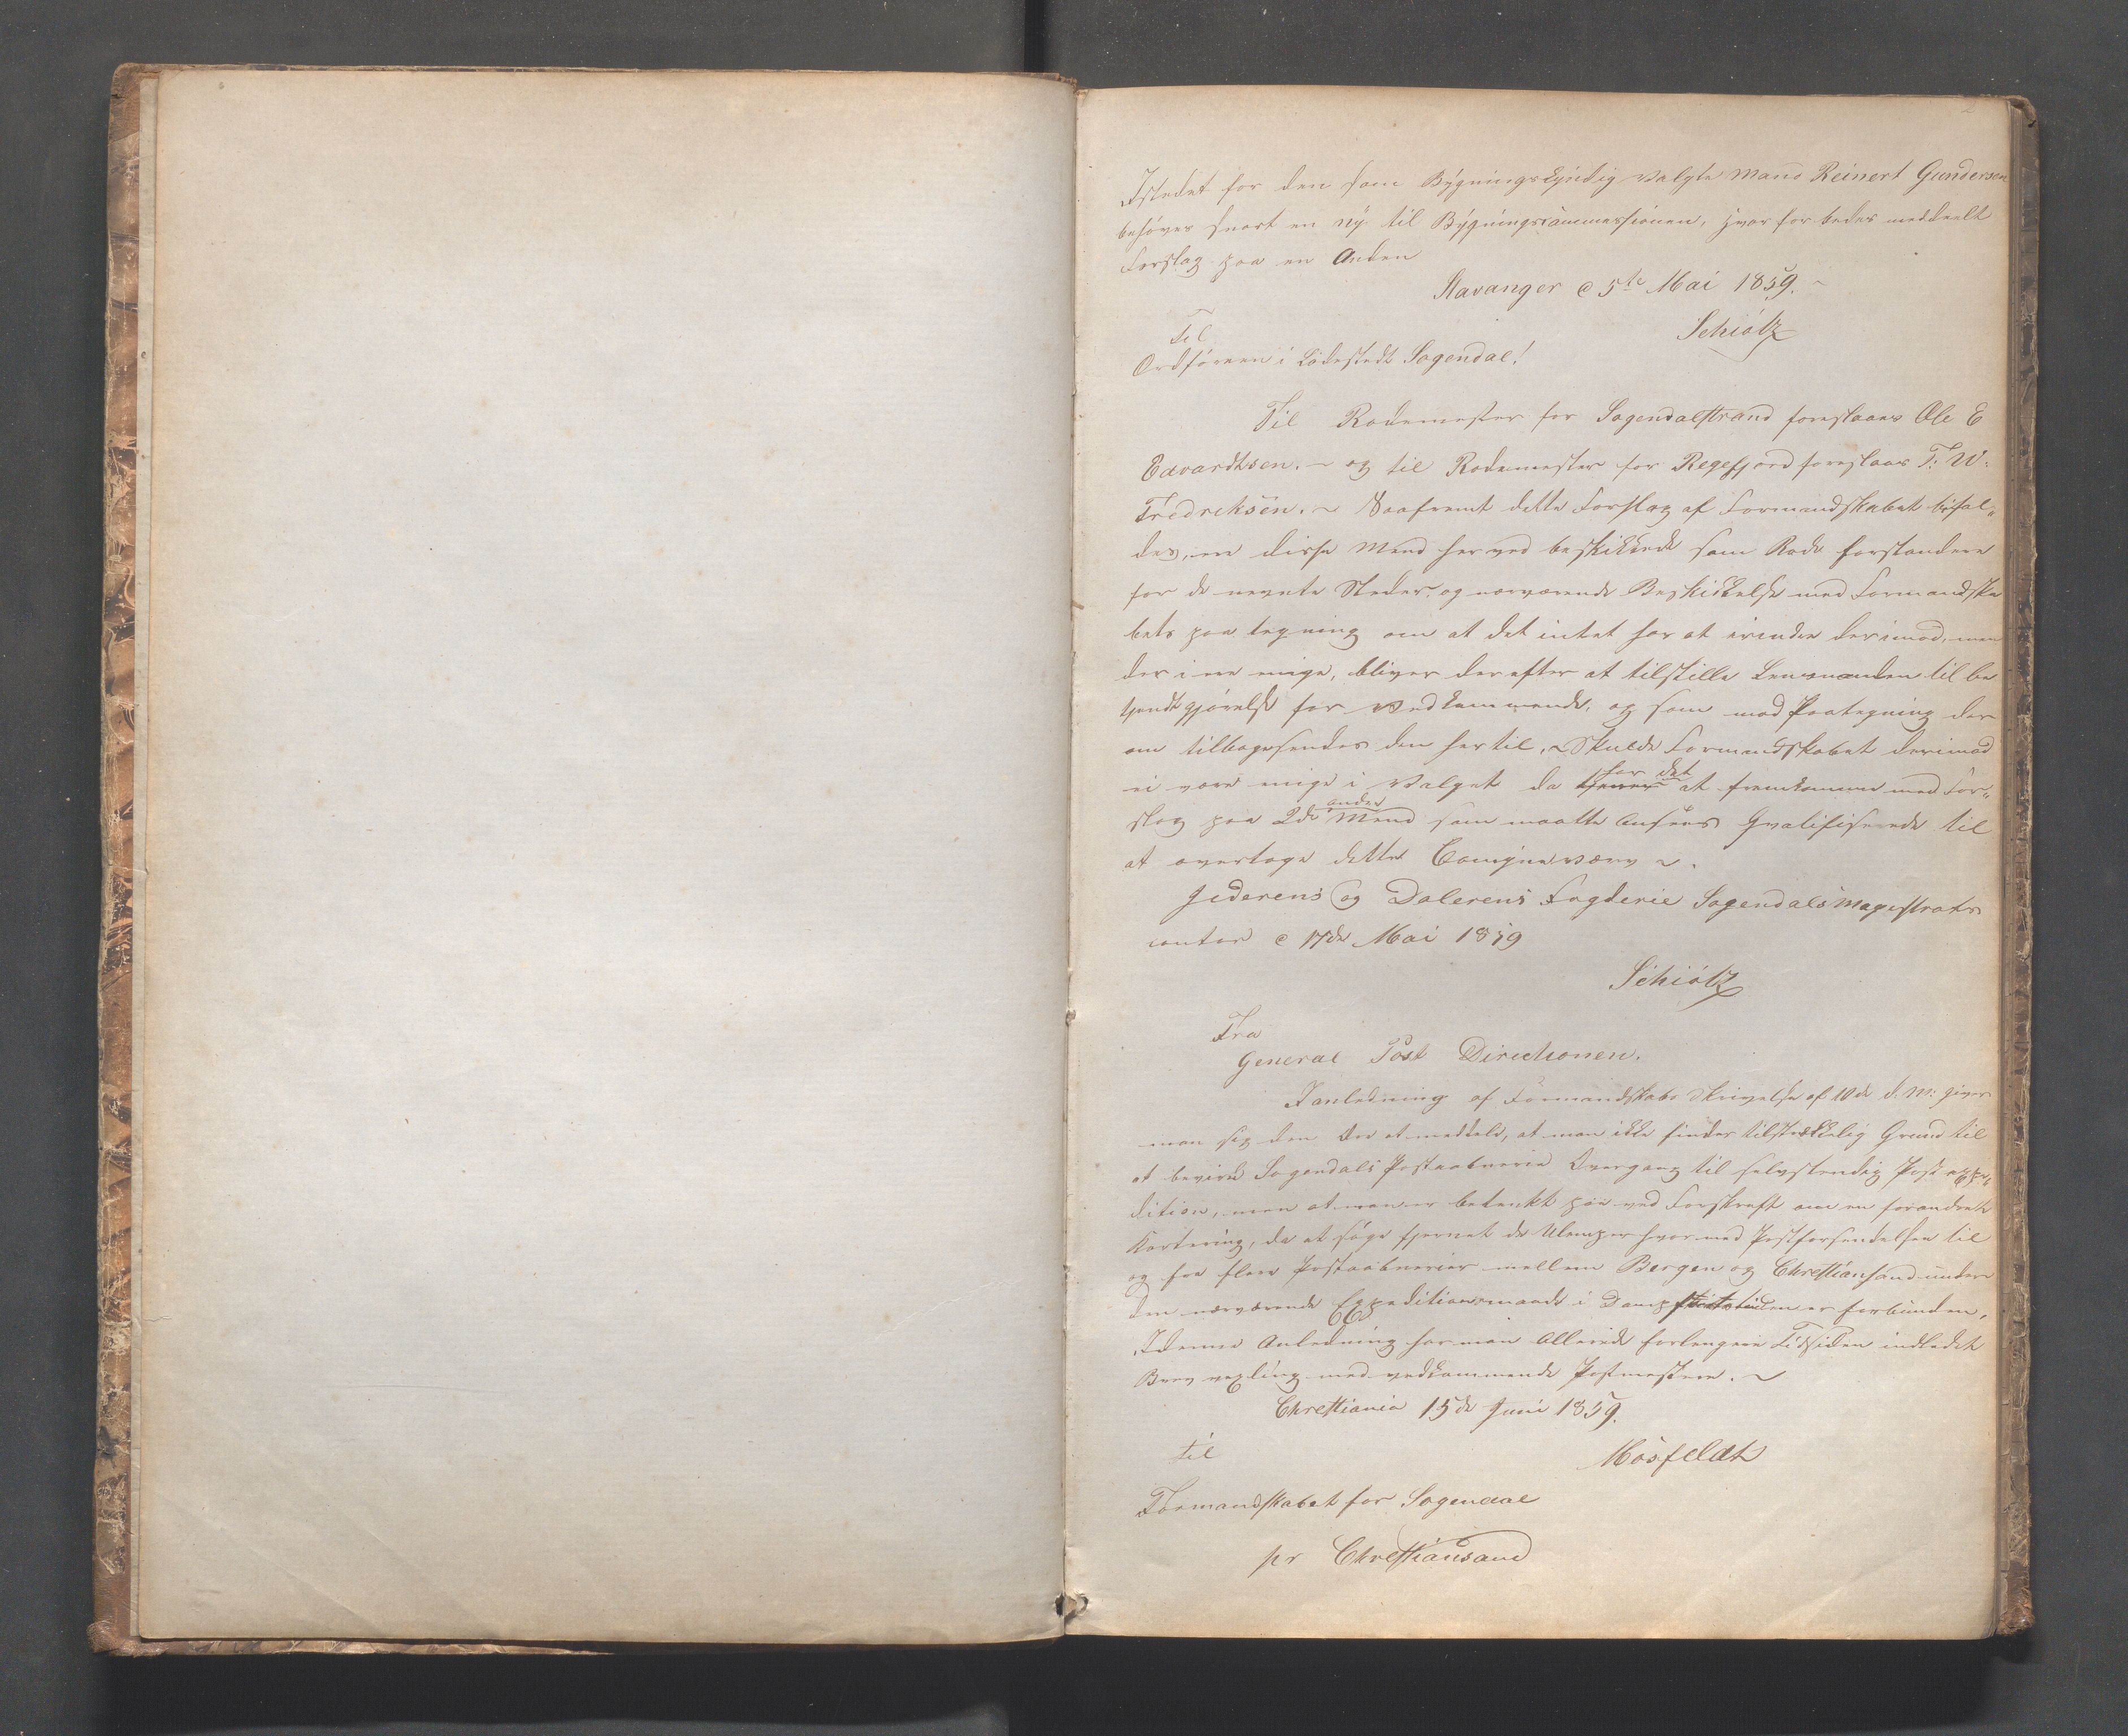 2
Istedet for den som Bygningskyndig valgte Mand Reinert Gundersen
behøves snart en ny til Bygningscommessionen, hvorfor bedes meddeelt
Forslag paa en Anden
Stavanger d 5te Mai 1859. ~
Schiøtz
Til
Ordføreren i Ladestedt Sogendal!
Til Rodemester for Sogendalstrand foreslaaes Ole E
Edvardtsen. ~ og til Rodemester for Regefjord foreslaaes T: W.
Fredreksen. ~ Saafremt dette Forslag af Formandskabet bifal„
des, ere disse Mend herved beskikkede som Rode forstandere
for de nevnte Steder og nærværende Beskikkelse med Formandska
bets paa tegning om at det intet har at erindre derimod, men
der i ere enige, bliver derefter at tilstille Lensmanden til be
kjendtgjørelse for Vedkommende, og som med Paategning der
om tilbagesendes den hertil. ~ Skulde Formandskabet derimod
ei være enige i Valget da har det at fremkomme med For„
slag paa 2de andre Mend som maatte ansees Qvalifiserede til
at overtage dette Comyneværv ~.
Jederens og Dalerens Fogderie Sogendals Magestrats
contor d 17de Mai 1859
Schiøtz
Fra
General Post Directionen.
I anledning af Formandskabs Skrivelse af 10de d. M: giver
man sig den Ære at meddele, at man ikke finder tilstrekkelig Grund til
at bevirke Sogendals Postaabnerie Overgang til selvstendig Post expe„
dition, men at man er betenkt paa ved Forskreft om en forandret
Kartering, da at søge fjernet de Ulemper hvormed Postforsendelsen til
og fra flere Postaabnerier mellem Bergen og Chrestiansand under
den nærværende Expeditionsmaade i Dampskibstiden er forbunden.
I denne Anledning har man allerede forlengere Tid siden indledet
Brev vexling med vedkommende Postmestere. ~
Chrestiania 15de Juni 1859.
Mosfeldt
til
Formandskabet for Sogendal
pr Chrestiansand